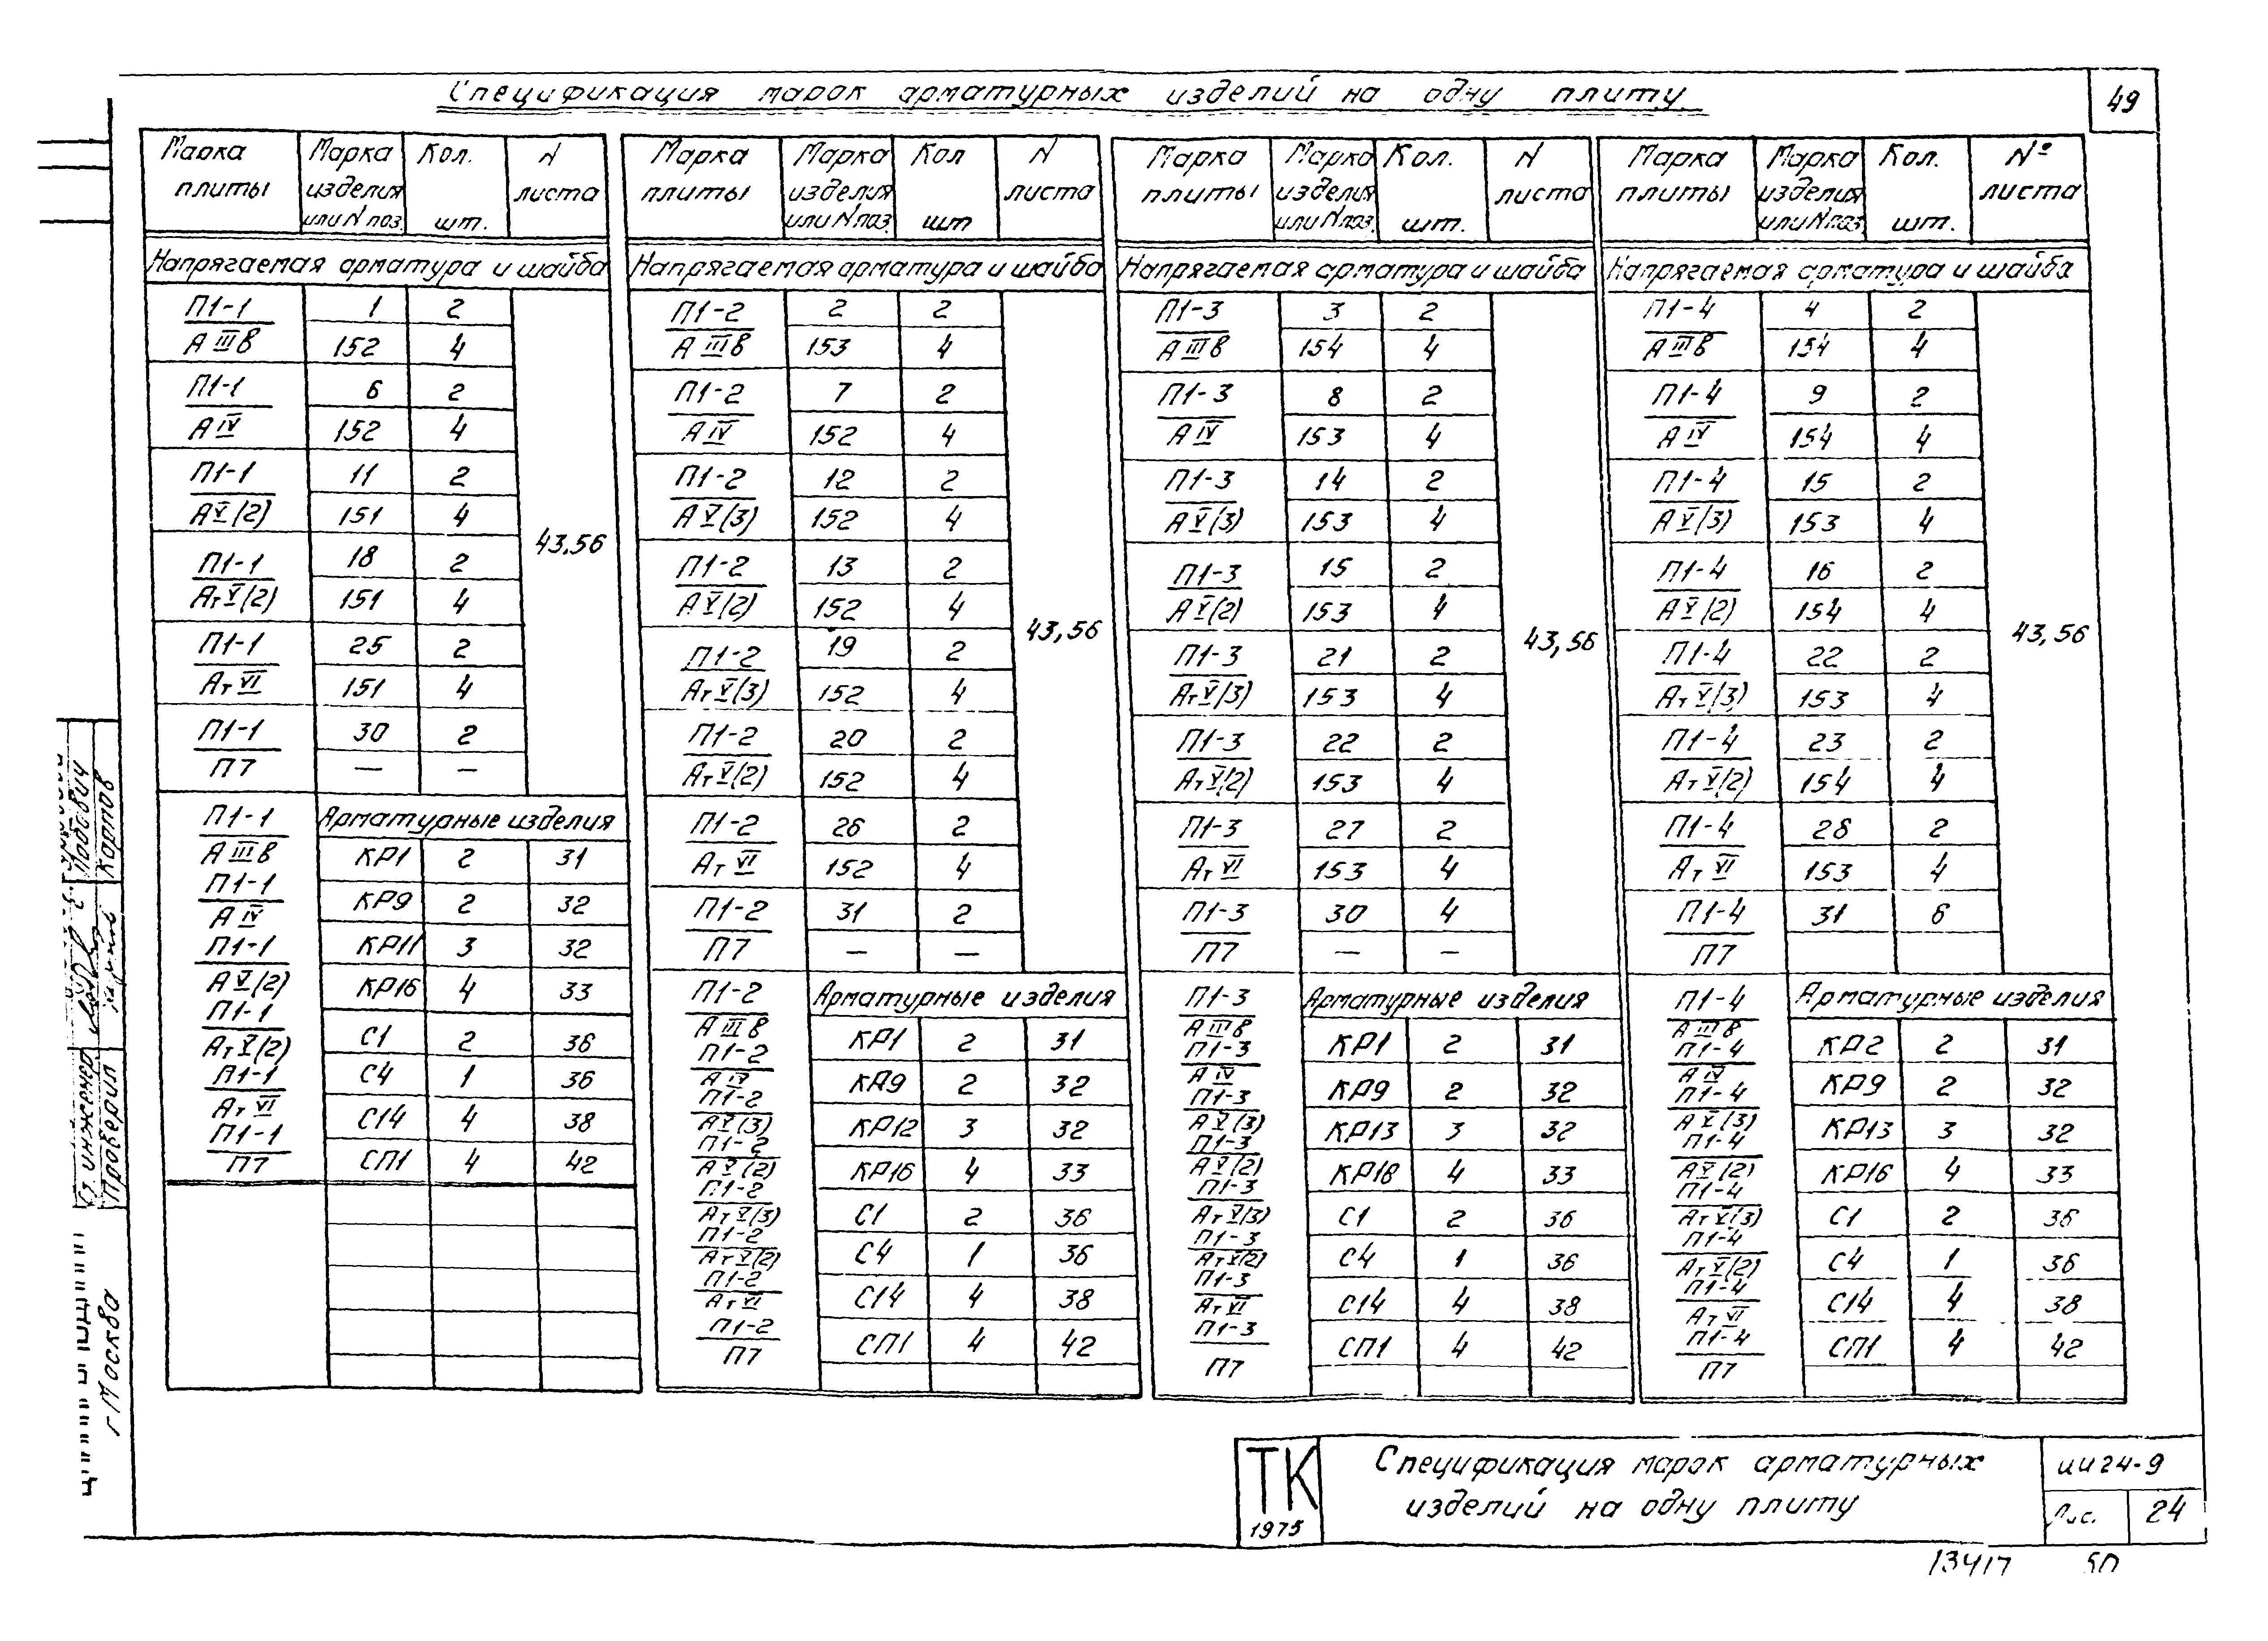 Спецификация марок арматурных изделий на одну плиту
49
Марка плиты | Марка изделия или N поз. | Кол. шт. | N листа
Напрягаемая арматура и шайба
П1-1 | 1 | 2 | 43,56
А IIIв | 152 | 4
П1-1 | 6 | 2
А IV | 152 | 4
П1-1 | 11 | 2
А V (2) | 151 | 4
П1-1 | 18 | 2
Ат V (2) | 151 | 4
П1-1 | 25 | 2
Ат VI | 151 | 4
П1-1 | 30 | 2
П7 | — | —
Арматурные изделия
П1-1
А IIIв
П1-1
А IV
П1-1
А V (2)
П1-1
Ат V (2)
П1-1
Ат VI
П1-1
П7
КР1 | 2 | 31
КР9 | 2 | 32
КР11 | 3 | 32
КР16 | 4 | 33
С1 | 2 | 36
С4 | 1 | 36
С14 | 4 | 38
СП1 | 4 | 42
Марка плиты | Марка изделия или N поз. | Кол шт | N листа
Напрягаемая арматура и шайба
П1-2 | 2 | 2 | 43,56
А IIIв | 153 | 4
П1-2 | 7 | 2
А IV | 152 | 4
П1-2 | 12 | 2
А V (3) | 152 | 4
П1-2 | 13 | 2
А V (2) | 152 | 4
П1-2 | 19 | 2
Ат V (3) | 152 | 4
П1-2 | 20 | 2
Ат V (2) | 152 | 4
П1-2 | 26 | 2
Ат VI | 152 | 4
П1-2 | 31 | 2
П7 | — | —
Арматурные изделия
П1-2
А IIIв
П1-2
А IV
П1-2
А V (3)
П1-2
А V (2)
П1-2
Ат V (3)
П1-2
Ат V (2)
П1-2
Ат VI
П1-2
П7
КР1 | 2 | 31
КР9 | 2 | 32
КР12 | 3 | 32
КР16 | 4 | 33
С1 | 2 | 36
С4 | 1 | 36
С14 | 4 | 38
СП1 | 4 | 42
Марка плиты | Марка изделия или N поз. | Кол. шт. | N листа
Напрягаемая арматура и шайба
П1-3 | 3 | 2 | 43,56
А IIIв | 154 | 4
П1-3 | 8 | 2
А IV | 153 | 4
П1-3 | 14 | 2
А V (3) | 153 | 4
П1-3 | 15 | 2
А V (2) | 153 | 4
П1-3 | 21 | 2
Ат V (3) | 153 | 4
П1-3 | 22 | 2
Ат V (2) | 153 | 4
П1-3 | 27 | 2
Ат VI | 153 | 4
П1-3 | 30 | 4
П7 | — | —
Арматурные изделия
П1-3
А IIIв
П1-3
А IV
П1-3
А V (3)
П1-3
А V (2)
П1-3
Ат V (3)
П1-3
Ат V (2)
П1-3
Ат VI
П1-3
П7
КР1 | 2 | 31
КР9 | 2 | 32
КР13 | 3 | 32
КР18 | 4 | 33
С1 | 2 | 36
С4 | 1 | 36
С14 | 4 | 38
СП1 | 4 | 42
Марка плиты | Марка изделия или N поз. | Кол. шт. | № листа
Напрягаемая арматура и шайба
П1-4 | 4 | 2 | 43,56
А IIIв | 154 | 4
П1-4 | 9 | 2
А IV | 154 | 4
П1-4 | 15 | 2
А V (3) | 153 | 4
П1-4 | 16 | 2
А V (2) | 154 | 4
П1-4 | 22 | 2
Ат V (3) | 153 | 4
П1-4 | 23 | 2
Ат V (2) | 154 | 4
П1-4 | 28 | 2
Ат VI | 153 | 4
П1-4 | 31 | 6
П7
Арматурные изделия
П1-4
А IIIв
П1-4
А IV
П1-4
А V (3)
П1-4
А V (2)
П1-4
Ат V (3)
П1-4
Ат V (2)
П1-4
Ат VI
П1-4
П7
КР2 | 2 | 31
КР9 | 2 | 32
КР13 | 3 | 32
КР16 | 4 | 33
С1 | 2 | 36
С4 | 1 | 36
С14 | 4 | 38
СП1 | 4 | 42
Ст. инженер
Проверил
Карпов
г. Москва
ТК
1975
Спецификация марок арматурных
изделий на одну плиту
ИИ24-9
24
13417 50